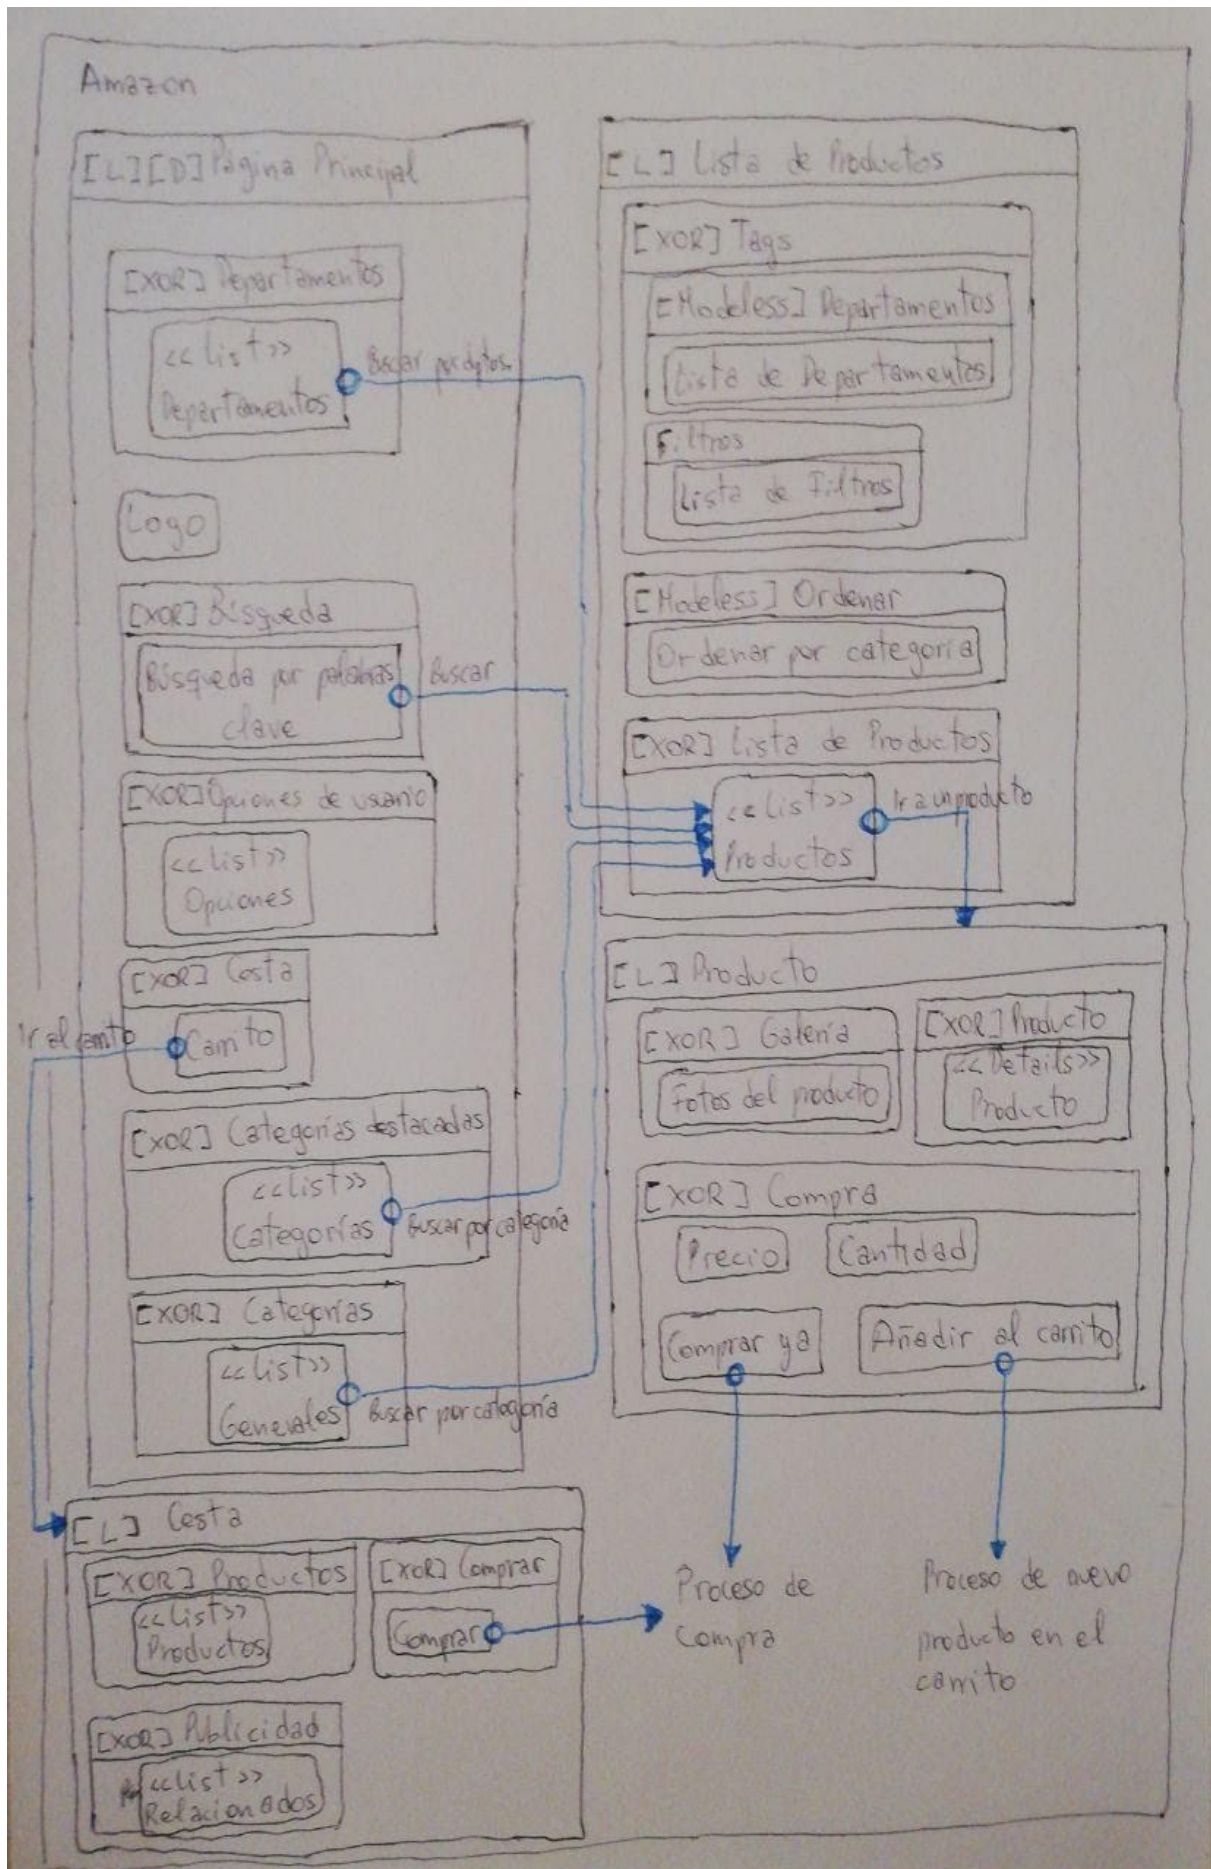 Amazon
[L][D] Página Principal
[XOR] Departamentos
<<List>>
Departamentos
Buscar por dptos.
Logo
[XOR] Búsqueda
Búsqueda por palabras
clave
Buscar
[XOR] Opciones de usuario
<<List>>
Opciones
[XOR] Cesta
Carrito
Ir al carrito
[XOR] Categorías destacadas
<<List>>
Categorías
Buscar por categoría
[XOR] Categorías
<<List>>
Generales
Buscar por categoría
[L] Lista de Productos
[XOR] Tags
[Modeless] Departamentos
Lista de Departamentos
Filtros
Lista de Filtros
[Modeless] Ordenar
Ordenar por categoría
[XOR] Lista de Productos
<<List>>
Productos
Ir a un producto
[L] Producto
[XOR] Galería
Fotos del producto
[XOR] Producto
<<Details>>
Producto
[XOR] Compra
Precio
Cantidad
Comprar ya
Añadir al carrito
[L] Cesta
[XOR] Productos
<<List>>
Productos
[XOR] Comprar
Comprar
[XOR] Publicidad
<<List>>
Relacionados
Proceso de
Compra
Proceso de nuevo
producto en el
carrito